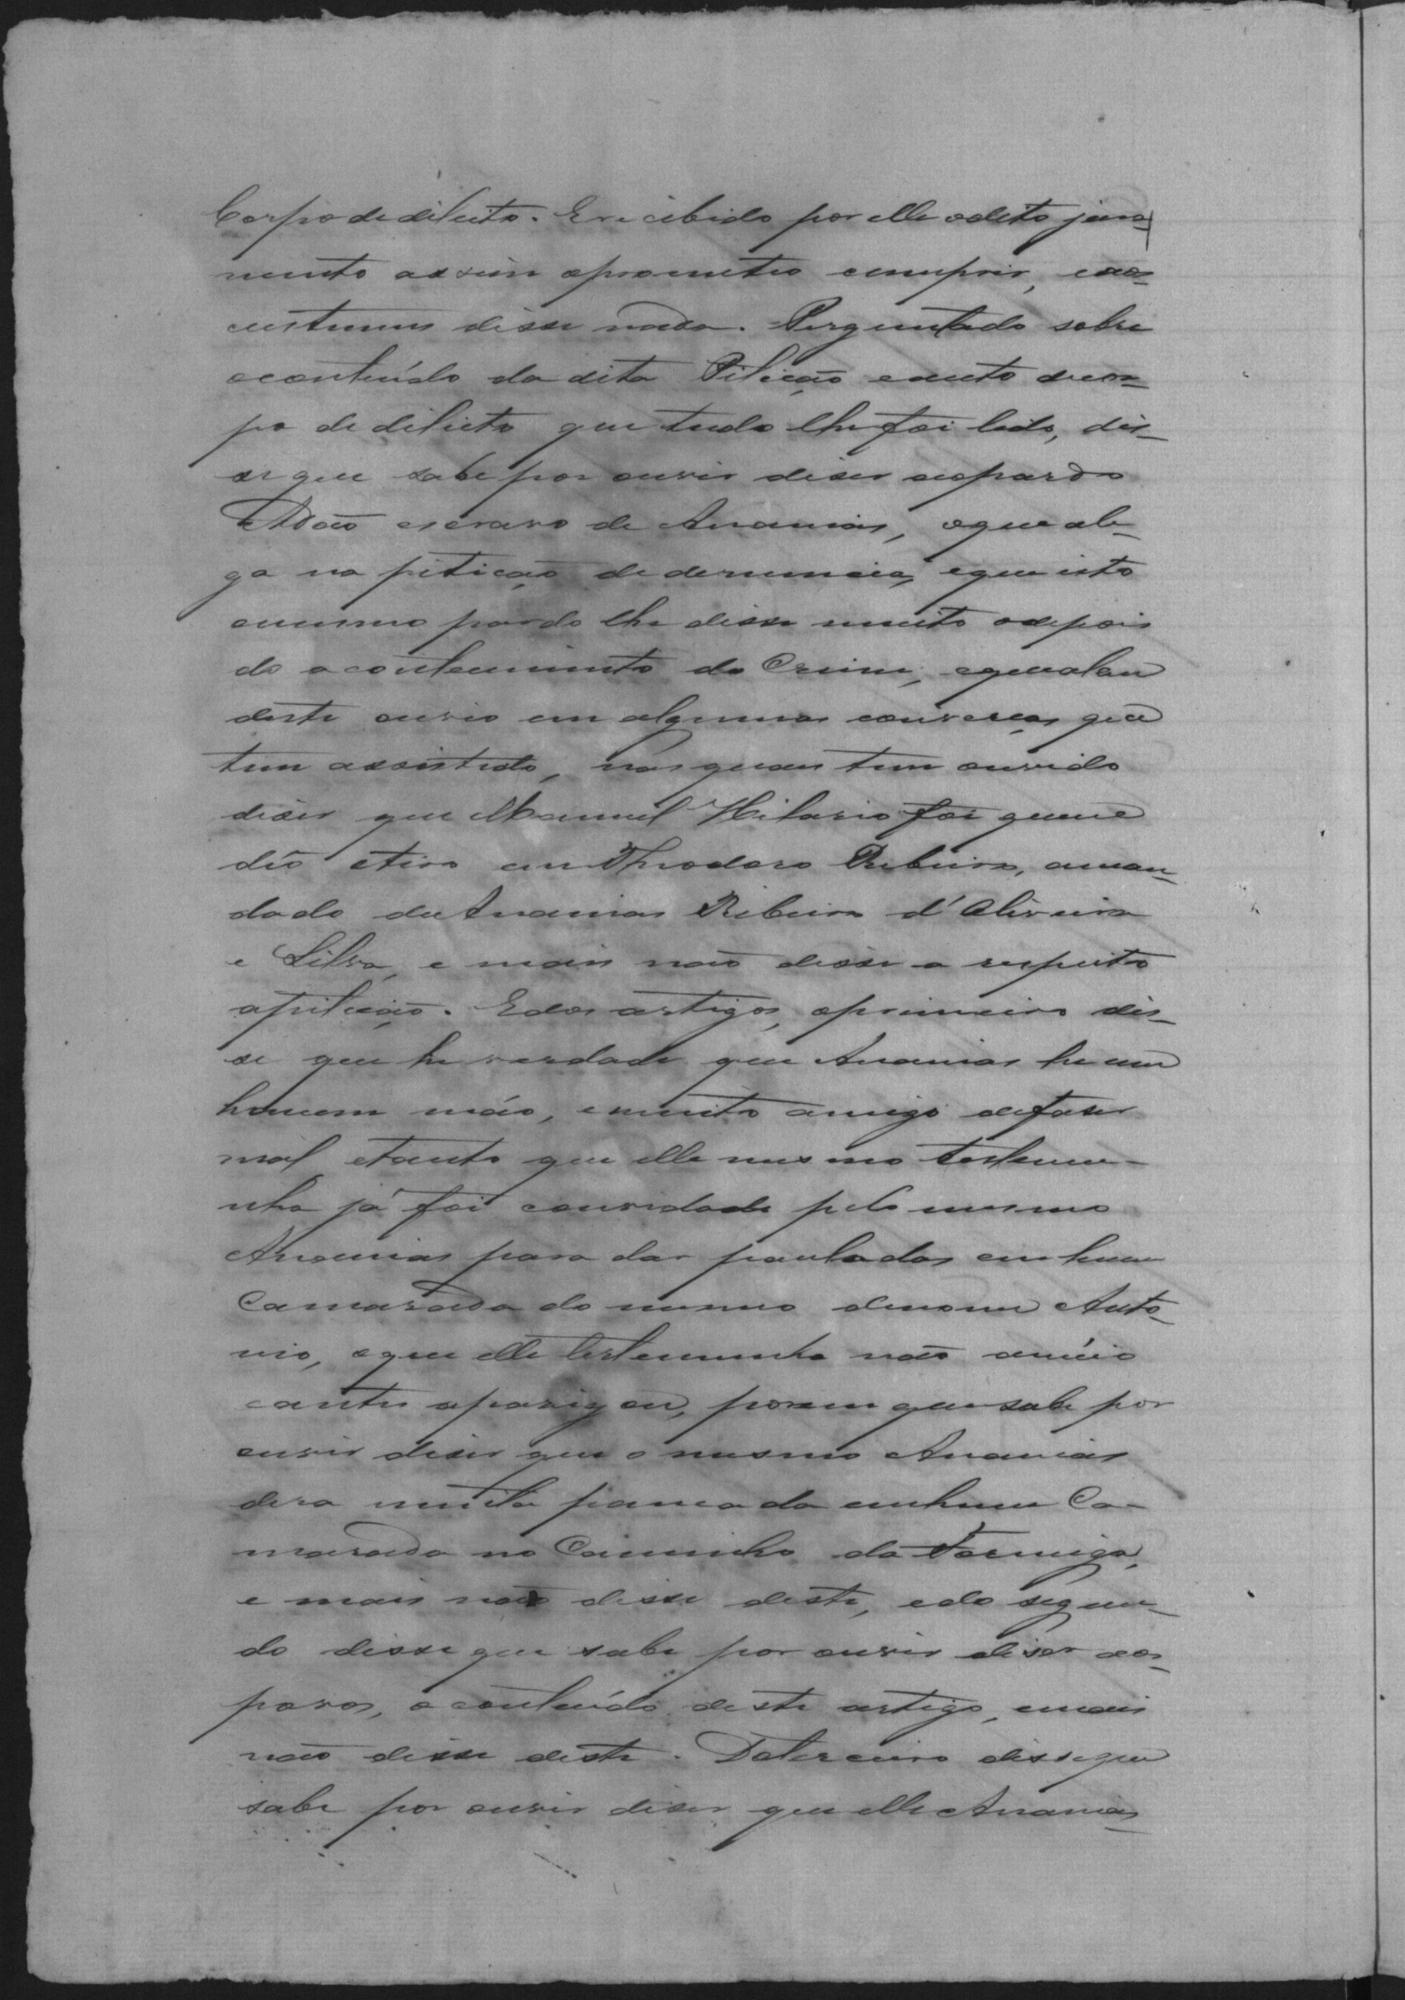 Corpo de delicto. E recibido por elle o dito jura-
mento assim o prometeo cumprir, e aos
custumes disse nada. Perguntado sobre
o contheúdo da dita Pitição e auto de cor-
po de delicto que tudo lhe foi lido, dis-
se que sabe por ouvir diser ao pardo
Adão escravo de Ananias, o que ale-
ga na pitição de denuncia, e que isto
o mesmo pardo lhe disse muito odepois
do acontecimento do Crime, e que alem
deste ouvio em algumas conversas que
tem assistido, nas quaes tem ouvido
diser que Manuel Hilario foi quem
dêo o tiro em Theodoro Ribeiro, a man-
dado de Ananias Ribeiro d'Oliveira
e Silva, e mais não disse a respeito
a pitição. E dos artigos, o primeiro dis-
se que he verdade que Ananias he um
homem máo, e muito amigo de faser
mal, e tanto que elle mesmo testemu-
nha já foi convidado pelo mesmo
Ananias para dar pauladas em hum
Camarada do mesmo de nome Anto-
nio, o que elle testemunha não
porem que sabe por
ouvir diser que o mesmo Ananias
dera muita pancada em hum Ca-
marada no Caminho da Formiga,
e mais não disse deste, e do segun-
do disse que sabe por ouvir diser aos
povos, o contheúdo deste artigo, e mais
não disse deste. Do terceiro disse que
sabe por ouvir diser que elle Ananias